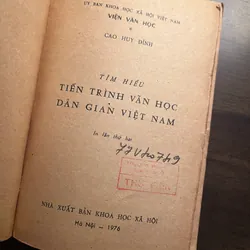 ỦY BAN KHOA HỌC XÃ HỘI VIỆT NAM
VIỆN VĂN HỌC
CAO HUY ĐỈNH
TÌM HIỂU
TIẾN TRÌNH VĂN HỌC
DÂN GIAN VIỆT NAM
In lần thứ hai
NHÀ XUẤT BẢN KHOA HỌC XÃ HỘI
Hà Nội — 1976